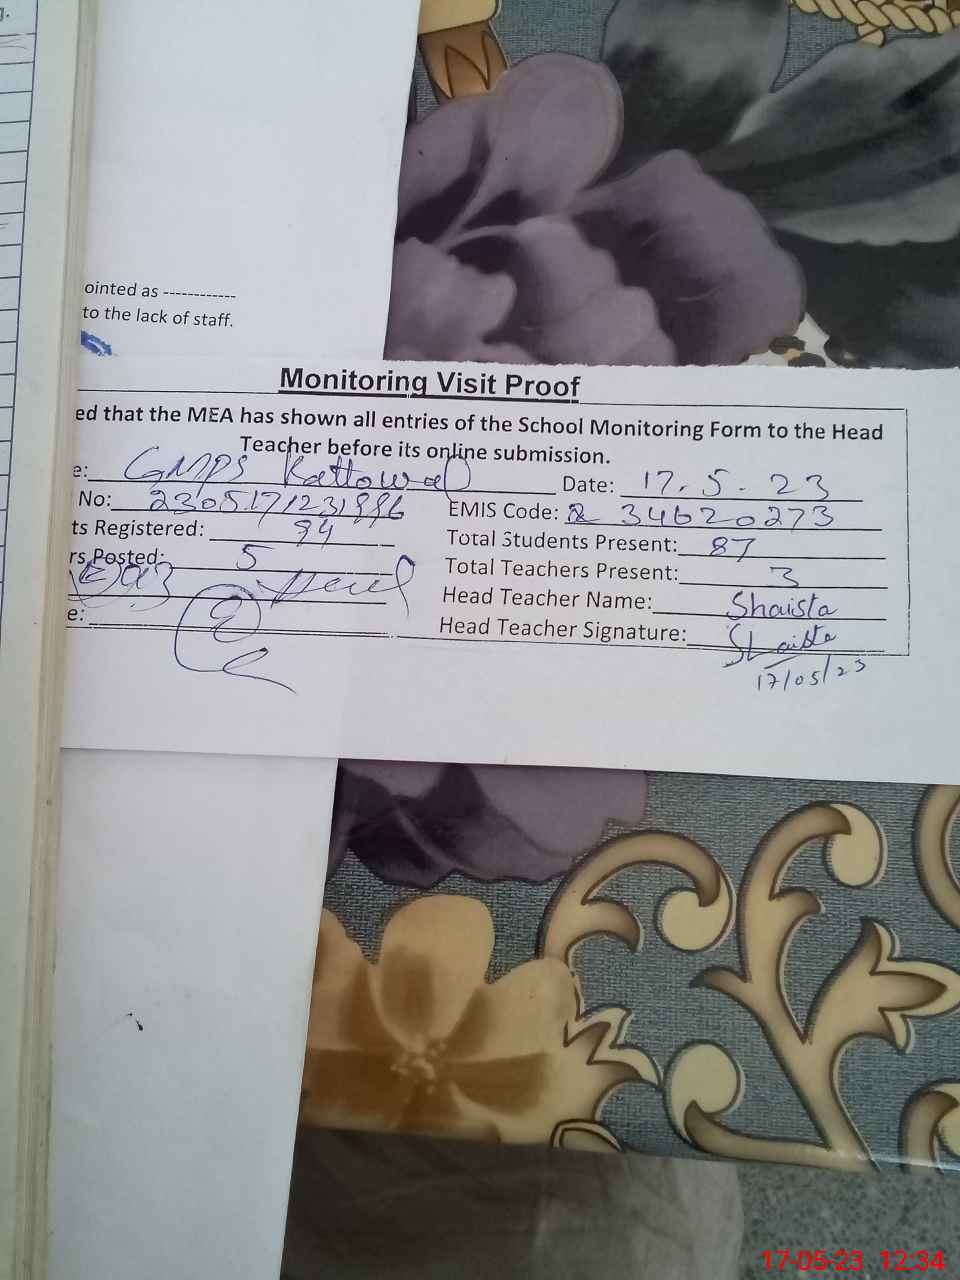 g.
ointed as ------------
to the lack of staff.
Monitoring Visit Proof
ed that the MEA has shown all entries of the School Monitoring Form to the Head
Teacher before its online submission.
e: GMPS Kattowal Date: 17.5.23
No: EMIS Code: 34620273
ts Registered: 94 Total Students Present: 87
rs Posted: 5 Total Teachers Present: 3
Head Teacher Name: Shaista
e: Head Teacher Signature: Shaista
17/05/23
17-05-23 12:34